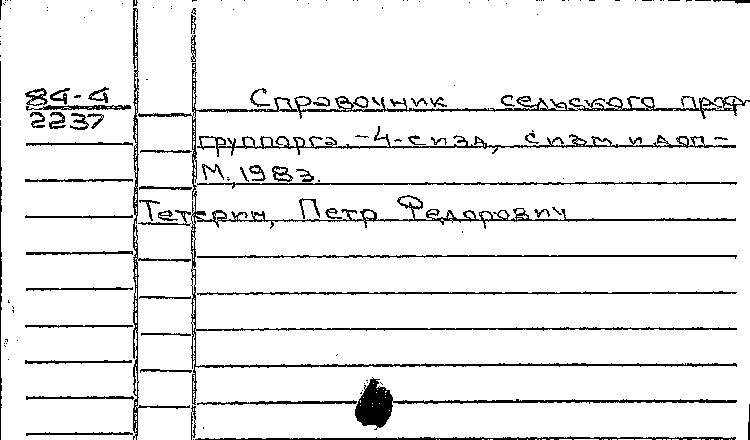 84-4
2237
Справочник сельского проф
группорга. -4-е изд, с изм и доп -
М., 1983.
Тетерин, Петр Федорович